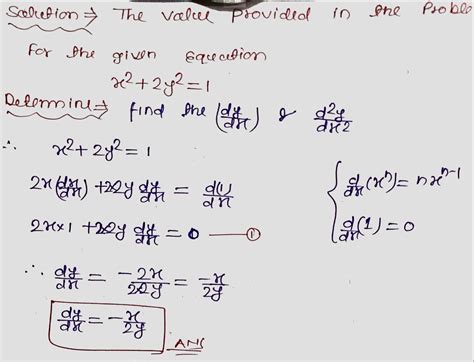 Solution ⇒ The value provided in the Proble
For the given Equation
x²+2y²=1
Determine ⇒ find the (dy/dx) & d²y/dx2
∴ x²+2y²=1
2x(dx/dx) + 2·2y dy/dx = d(1)/dx
{ d/dx(xⁿ) = nxⁿ⁻¹
2x×1 + 2·2y dy/dx = 0 — ①
d/dx(1) = 0
∴ dy/dx = -2x/2·2y = -x/2y
dy/dx = -x/2y ANS